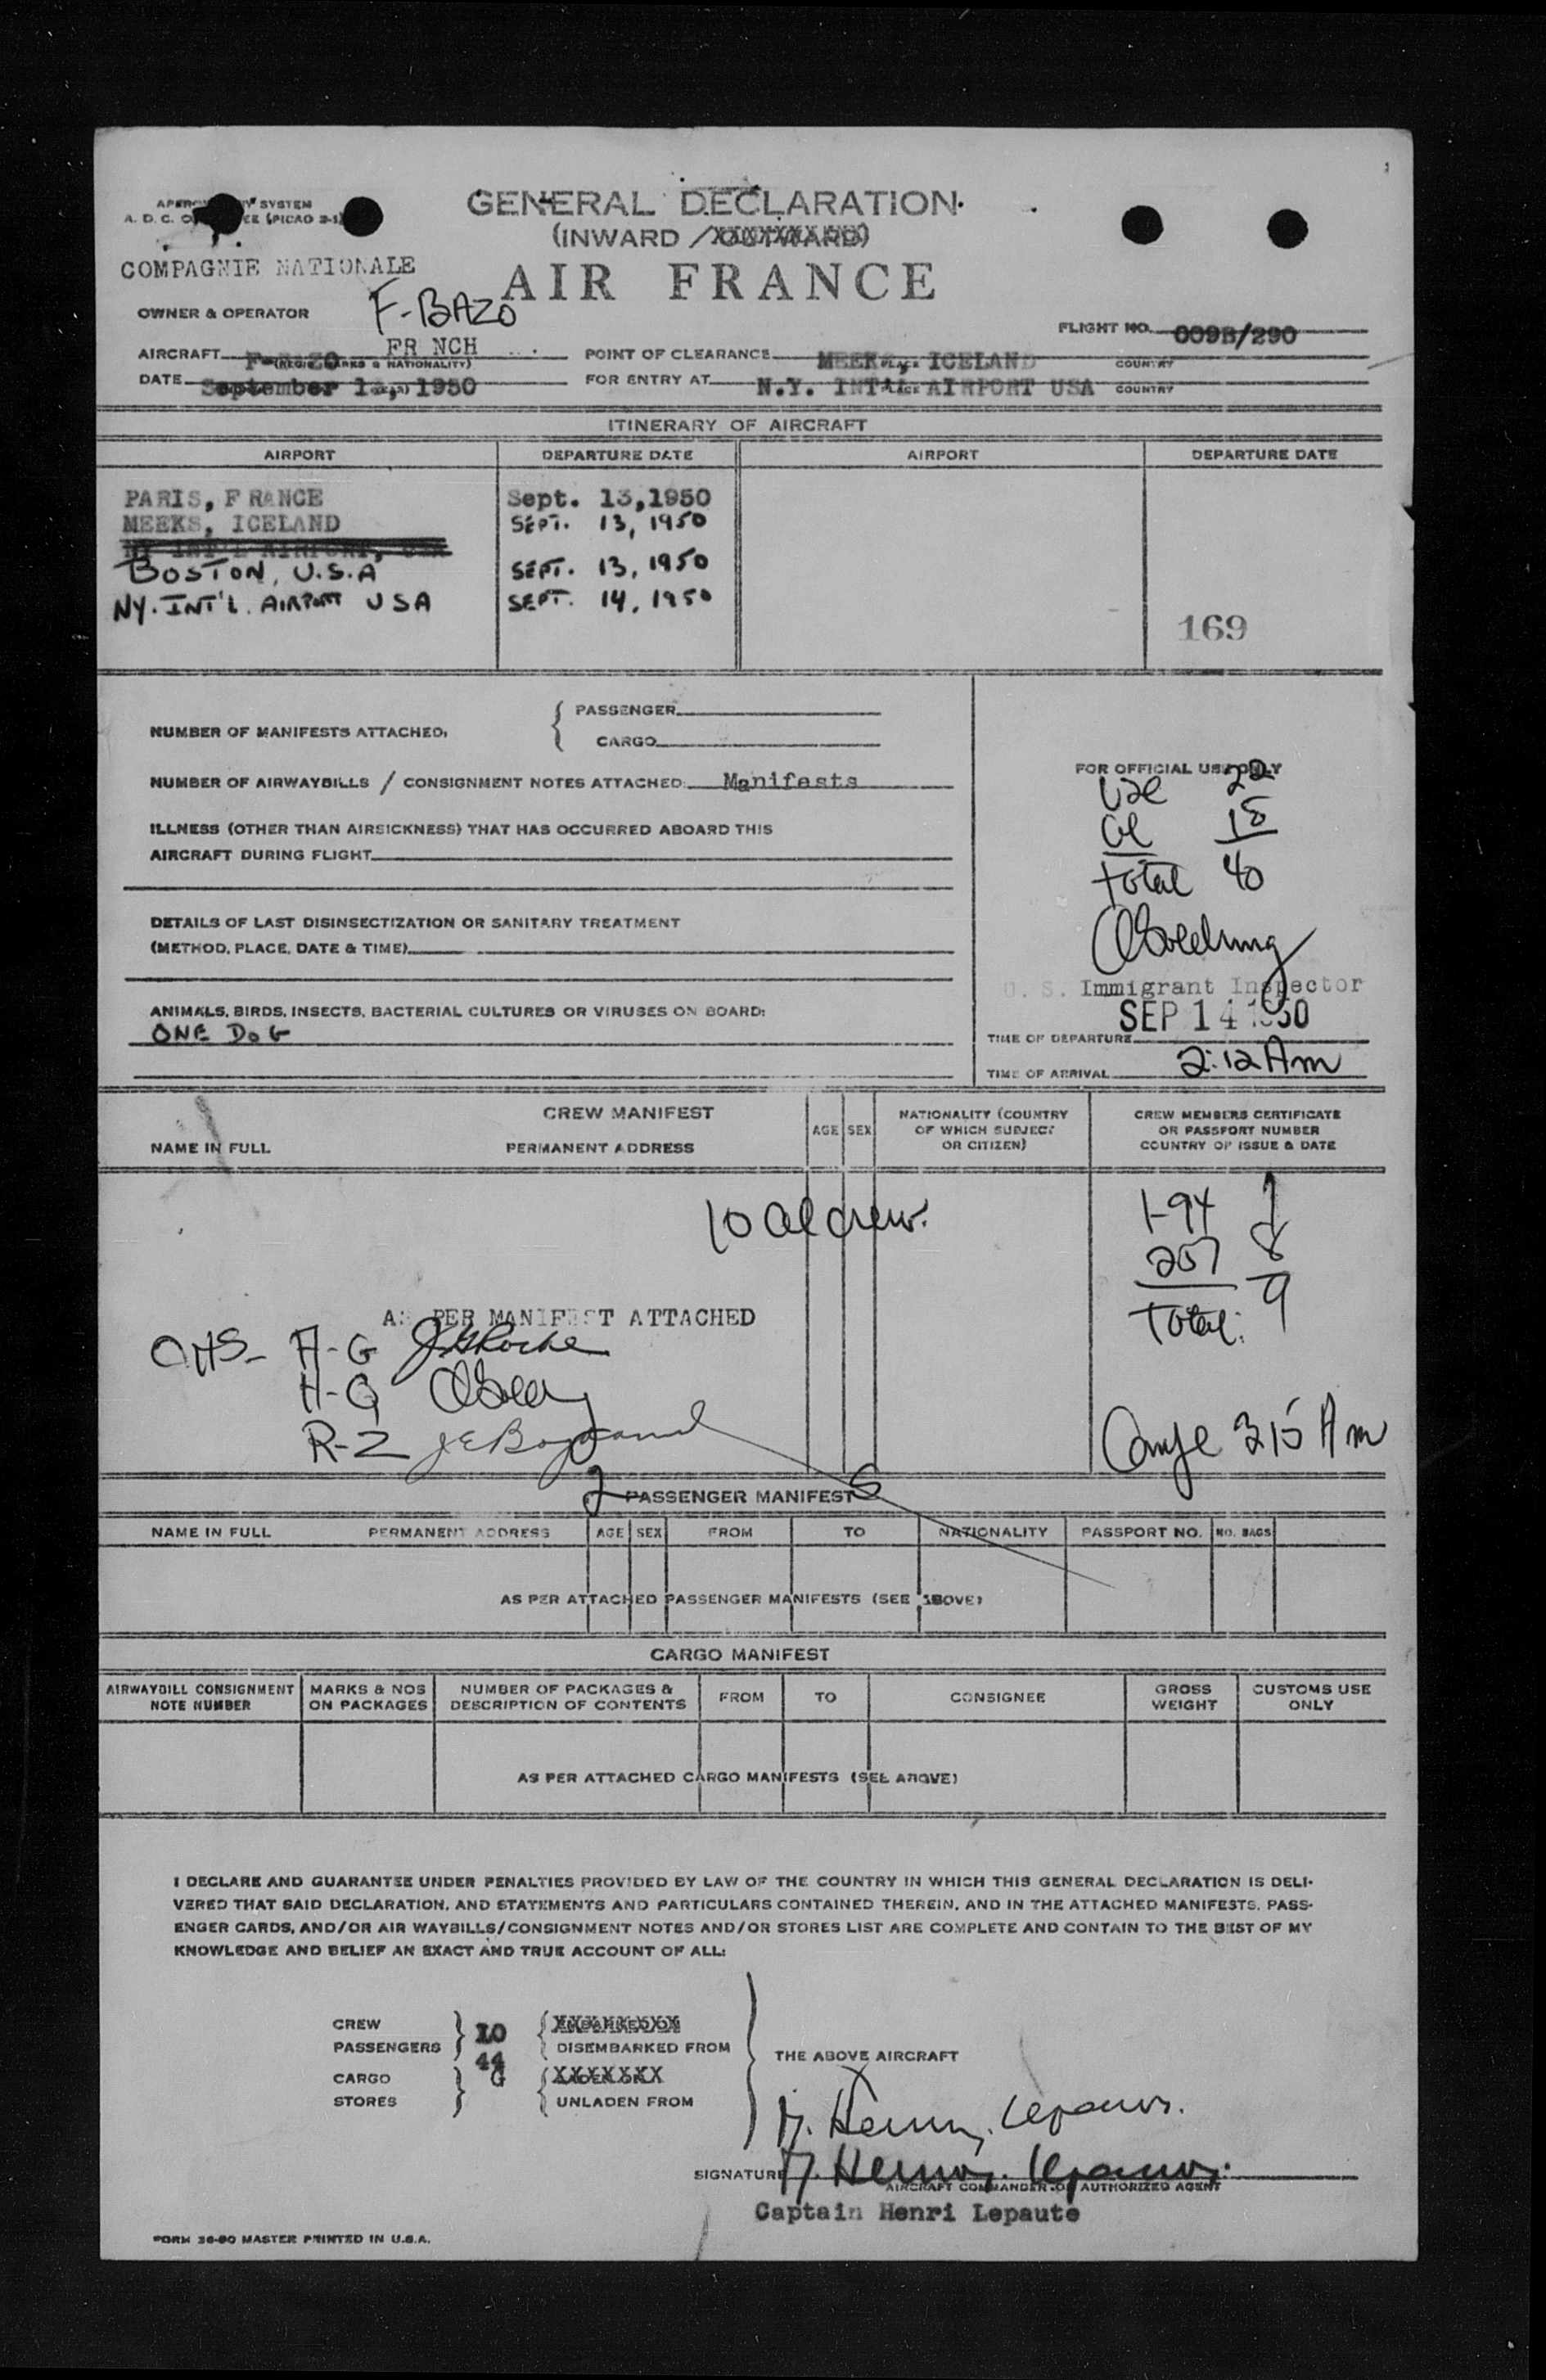 GENERAL DECLARATION
(INWARD /
A. D. C.
SYSTEM
COMPAGNIE NATIONALE
AIR FRANCE
OWNER & OPERATOR F-BAZO
FLIGHT NO. 009B/290
AIRCRAFT FR NCH
(REGIS. MARKS & NATIONALITY)
POINT OF CLEARANCE MEEKS, ICELAND
PLACE COUNTRY
DATE September 13, 1950
FOR ENTRY AT N.Y. INT'L AIRPORT USA
PLACE COUNTRY
ITINERARY OF AIRCRAFT
AIRPORT DEPARTURE DATE AIRPORT DEPARTURE DATE
PARIS, FRANCE Sept. 13,1950
MEEKS, ICELAND SEPT. 13, 1950
NY INT'L AIRPORT, USA
BOSTON, U.S.A SEPT. 13, 1950
NY. INT'L. AIRPORT USA SEPT. 14, 1950
169
NUMBER OF MANIFESTS ATTACHED:
PASSENGER
CARGO
NUMBER OF AIRWAYBILLS / CONSIGNMENT NOTES ATTACHED: Manifests
ILLNESS (OTHER THAN AIRSICKNESS) THAT HAS OCCURRED ABOARD THIS
AIRCRAFT DURING FLIGHT
DETAILS OF LAST DISINSECTIZATION OR SANITARY TREATMENT
(METHOD, PLACE, DATE & TIME)
ANIMALS, BIRDS, INSECTS, BACTERIAL CULTURES OR VIRUSES ON BOARD:
ONE DOG
FOR OFFICIAL USE ONLY
22
18
Total 40
U. S. Immigrant Inspector
SEP 14 1950
TIME OF DEPARTURE
TIME OF ARRIVAL 2:12 Am
CREW MANIFEST
NAME IN FULL PERMANENT ADDRESS
AGE SEX
NATIONALITY (COUNTRY
OF WHICH SUBJECT
OR CITIZEN)
CREW MEMBERS CERTIFICATE
OR PASSPORT NUMBER
COUNTRY OF ISSUE & DATE
10 al crew.
I-94 1
257 8
Total: 9
AS PER MANIFEST ATTACHED
H-G
H-Q
R-2
315 Am
2 PASSENGER MANIFESTS
NAME IN FULL PERMANENT ADDRESS AGE SEX FROM TO NATIONALITY PASSPORT NO. NO. BAGS
AS PER ATTACHED PASSENGER MANIFESTS (SEE ABOVE)
CARGO MANIFEST
AIRWAYBILL CONSIGNMENT
NOTE NUMBER
MARKS & NOS
ON PACKAGES
NUMBER OF PACKAGES &
DESCRIPTION OF CONTENTS
FROM TO CONSIGNEE
GROSS
WEIGHT
CUSTOMS USE
ONLY
AS PER ATTACHED CARGO MANIFESTS (SEE ABOVE)
I DECLARE AND GUARANTEE UNDER PENALTIES PROVIDED BY LAW OF THE COUNTRY IN WHICH THIS GENERAL DECLARATION IS DELI-
VERED THAT SAID DECLARATION, AND STATEMENTS AND PARTICULARS CONTAINED THEREIN, AND IN THE ATTACHED MANIFESTS, PASS-
ENGER CARDS, AND/OR AIR WAYBILLS/CONSIGNMENT NOTES AND/OR STORES LIST ARE COMPLETE AND CONTAIN TO THE BEST OF MY
KNOWLEDGE AND BELIEF AN EXACT AND TRUE ACCOUNT OF ALL:
CREW 10
PASSENGERS 44
DISEMBARKED FROM
CARGO
STORES
UNLADEN FROM
THE ABOVE AIRCRAFT
SIGNATURE
AIRCRAFT COMMANDER OR AUTHORIZED AGENT
Captain Henri Lepaute
FORM 36-80 MASTER PRINTED IN U.S.A.